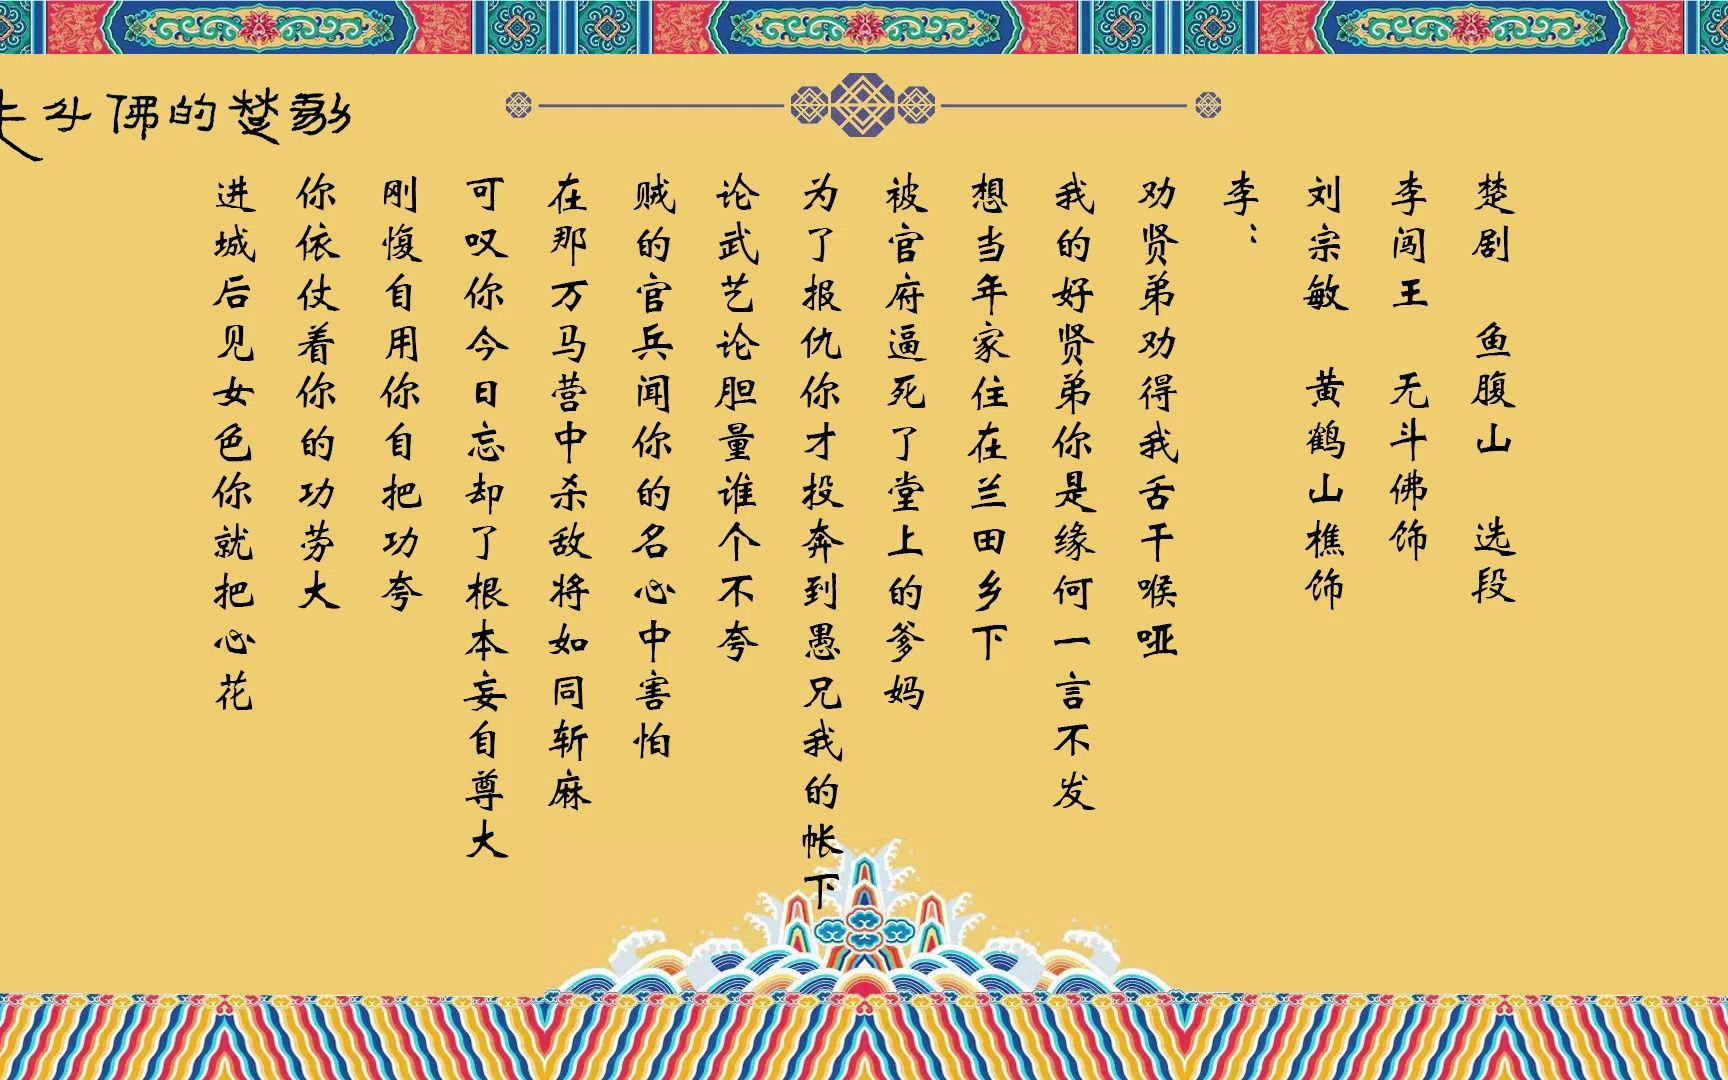 斗佛的楚剧
楚剧 鱼腹山 选段
李闯王 无斗佛饰
刘宗敏 黄鹤山樵饰
李：
劝贤弟劝得我舌干喉哑
我的好贤弟你是缘何一言不发
想当年家住在兰田乡下
被官府逼死了堂上的爹妈
为了报仇你才投奔到愚兄我的帐下
论武艺论胆量谁个不夸
贼的官兵闻你的名心中害怕
在那万马营中杀敌将如同斩麻
可叹你今日忘却了根本妄自尊大
刚愎自用你自把功夸
你依仗着你的功劳大
进城后见女色你就把心花